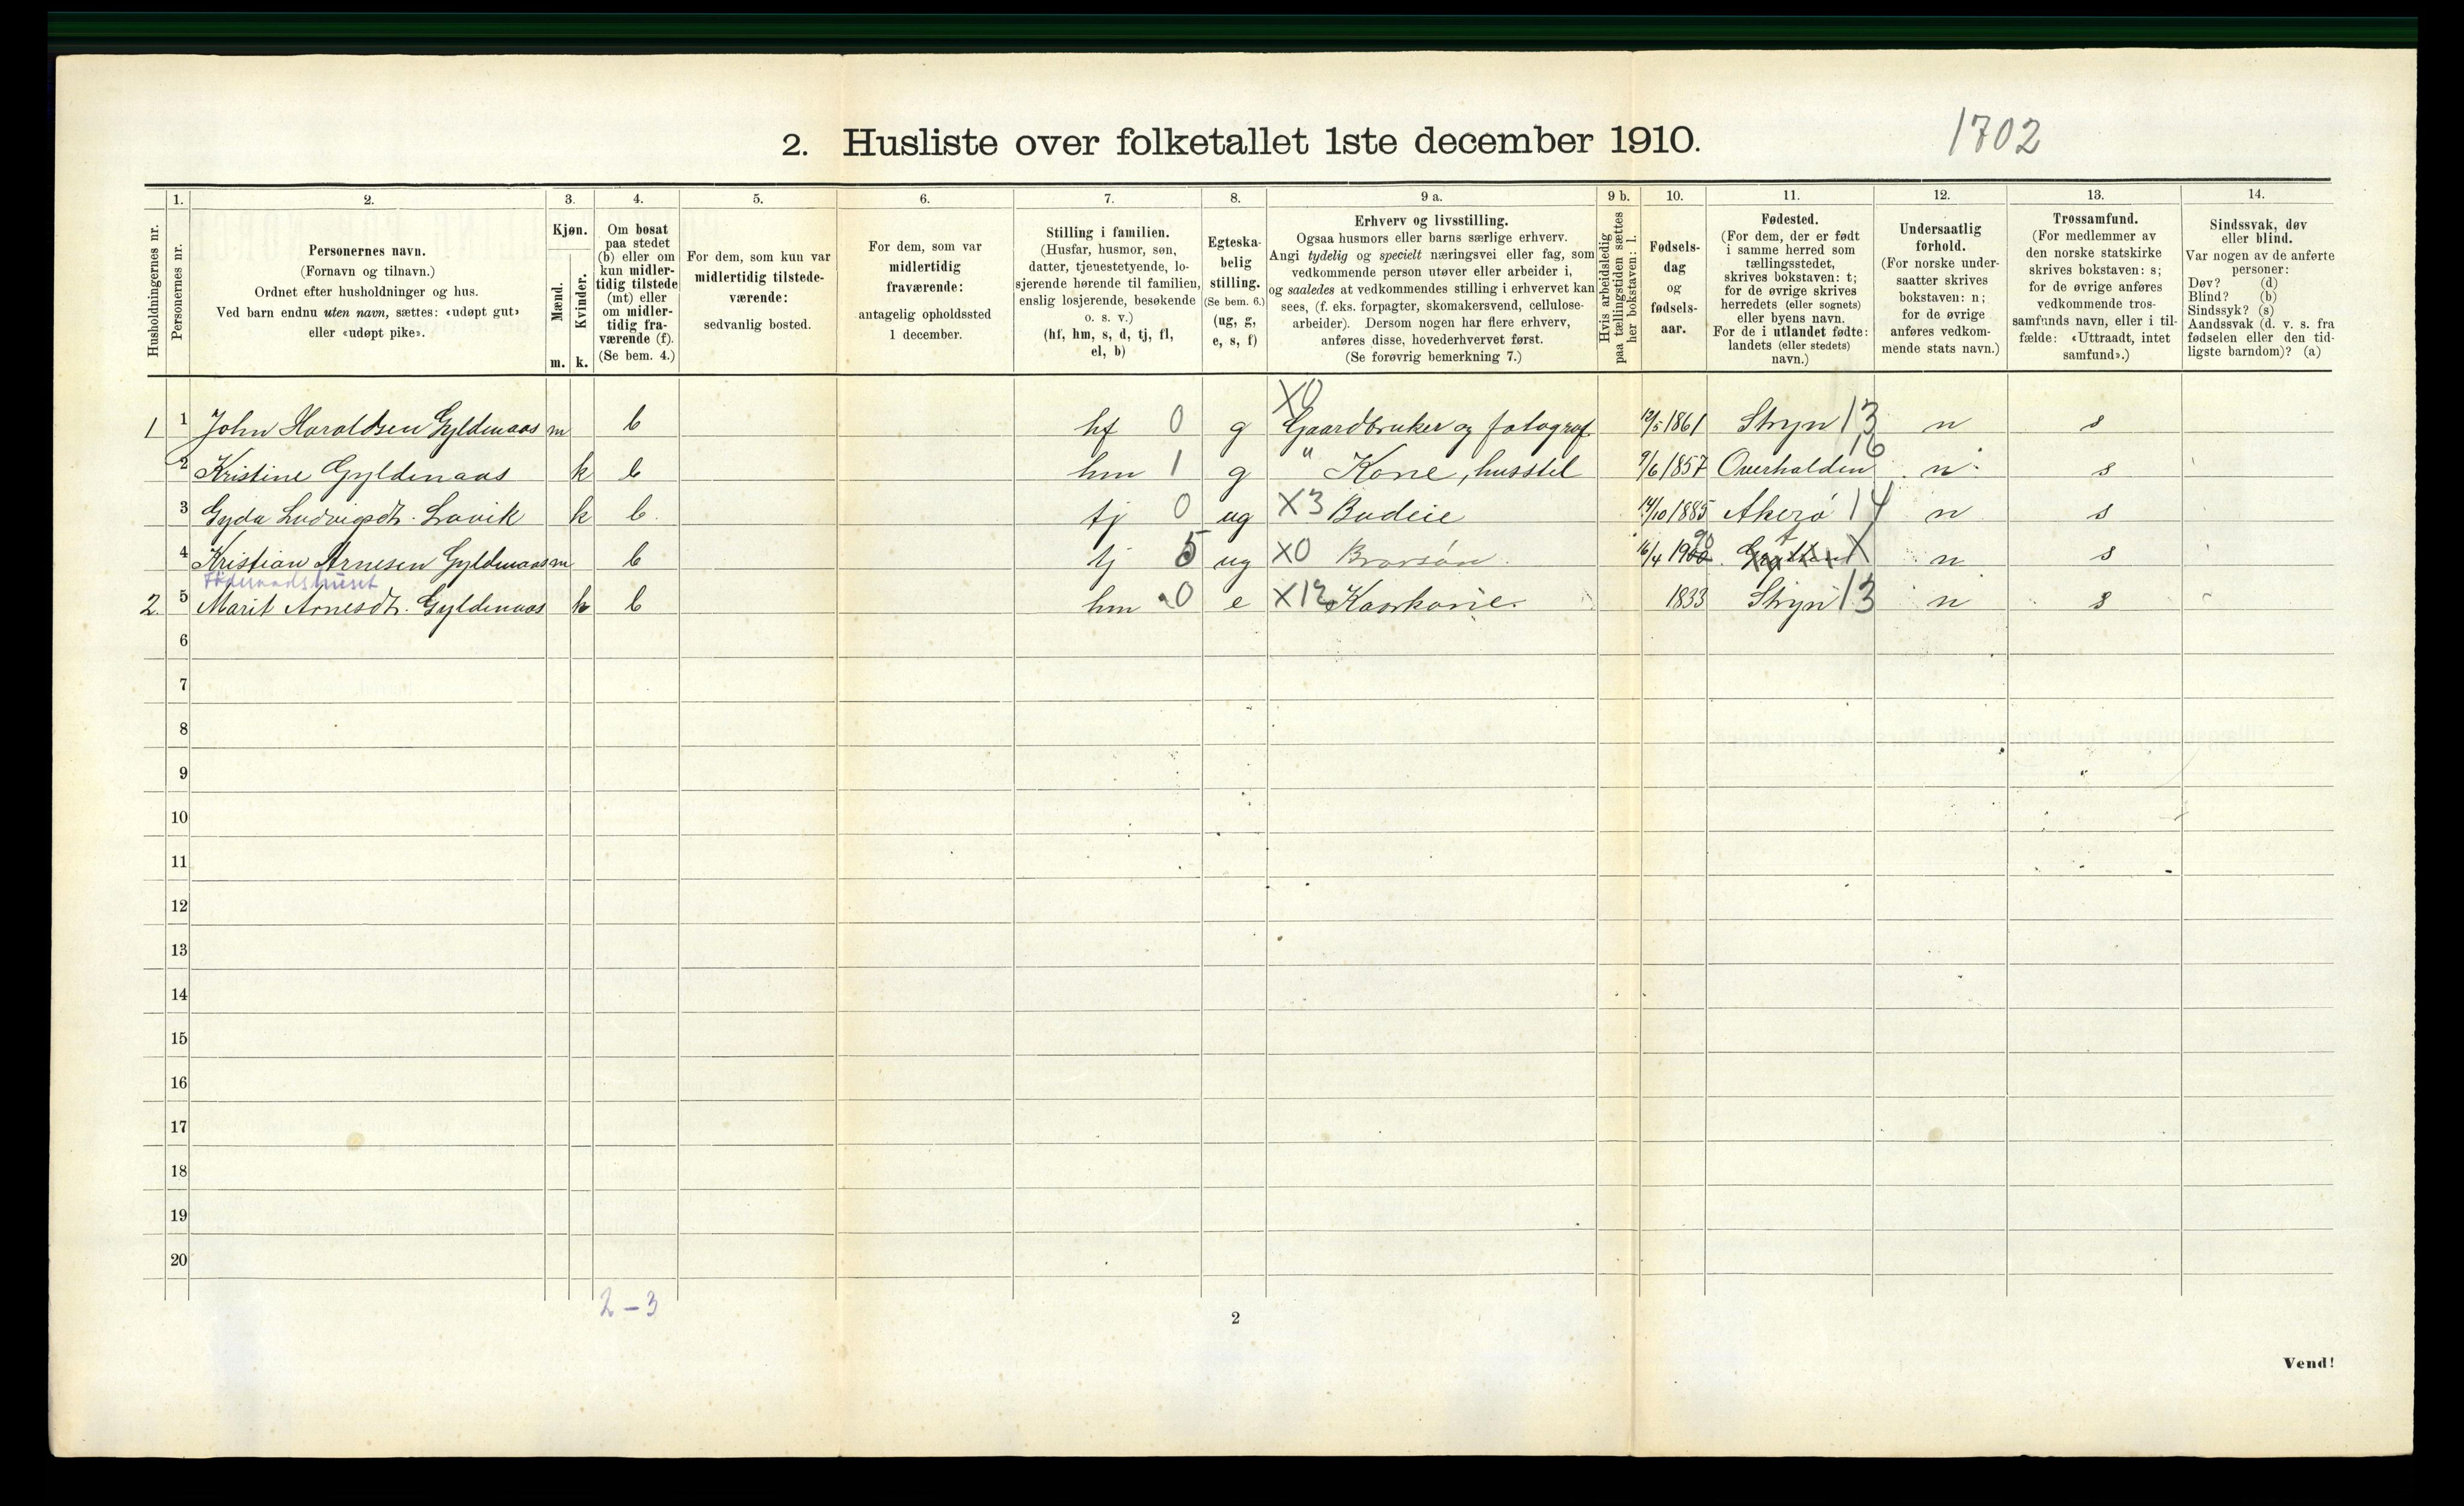 2. Husliste over folketallet 1ste december 1910.
1702
Husholdningernes nr.
1.
Personernes nr.
2.
Personernes navn.
(Fornavn og tilnavn.)
Ordnet efter husholdninger og hus.
Ved barn endnu uten navn, sættes: «udøpt gut»
eller «udøpt pike».
3.
Kjøn.
Mænd.
Kvinder.
m. k.
4.
Om bosat
paa stedet
(b) eller om
kun midler-
tidig tilstede
(mt) eller
om midler-
tidig fra-
værende (f).
(Se bem. 4.)
5.
For dem, som kun var
midlertidig tilstede-
værende:
sedvanlig bosted.
6.
For dem, som var
midlertidig
fraværende:
antagelig opholdssted
1 december.
7.
Stilling i familien.
(Husfar, husmor, søn,
datter, tjenestetyende, lo-
sjerende hørende til familien,
enslig losjerende, besøkende
o. s. v.)
(hf, hm, s, d, tj, fl,
el, b)
8.
Egteska-
belig
stilling.
(Se bem. 6.)
(ug, g,
e, s, f)
9 a.
Erhverv og livsstilling.
Ogsaa husmors eller barns særlige erhverv.
Angi tydelig og specielt næringsvei eller fag, som
vedkommende person utøver eller arbeider i,
og saaledes at vedkommendes stilling i erhvervet kan
sees, (f. eks. forpagter, skomakersvend, cellulose-
arbeider). Dersom nogen har flere erhverv,
anføres disse, hovederhvervet først.
(Se forøvrig bemerkning 7.)
9 b.
Hvis arbeidsledig
paa tællingstiden sættes
her bokstaven: l.
10.
Fødsels-
dag
og
fødsels-
aar.
11.
Fødested.
(For dem, der er født
i samme herred som
tællingsstedet,
skrives bokstaven: t;
for de øvrige skrives
herredets (eller sognets)
eller byens navn.
For de i utlandet fødte:
landets (eller stedets)
navn.)
12.
Undersaatlig
forhold.
(For norske under-
saatter skrives
bokstaven: n;
for de øvrige
anføres vedkom-
mende stats navn.)
13.
Trossamfund.
(For medlemmer av
den norske statskirke
skrives bokstaven: s;
for de øvrige anføres
vedkommende tros-
samfunds navn, eller i til-
fælde: «Uttraadt, intet
samfund».)
14.
Sindssvak, døv
eller blind.
Var nogen av de anførte
personer:
Døv? (d)
Blind? (b)
Sindssyk? (s)
Aandssvak (d. v. s. fra
fødselen eller den tid-
ligste barndom)? (a)
1 1 John Haraldsen Gyldenaas m b hf 0 g X0 Gaardbruker og fotograf 12/5 1861 Stryn 13 n s
2 Kristine Gyldenaas k b hm 1 g " Kone, husstel 9/6 1857 Overhalden 16 n s
3 Gyda Ludvigsdt. Lavik k b tj 0 ug X3 Budeie 14/10 1885 Akerö 14 n s
4 Kristian Arnesen Gyldenaas m b tj 5 ug X0 Brorsøn 16/4 1900 t X n s
Föderaadshuset
2. 5 Marit Arnesdt. Gyldenaas k b hm 0 e X12 Kaarkone 1833 Stryn 13 n s
6
7
8
9
10
11
12
13
14
15
16
17
18
19
20
2-3
2
Vend!